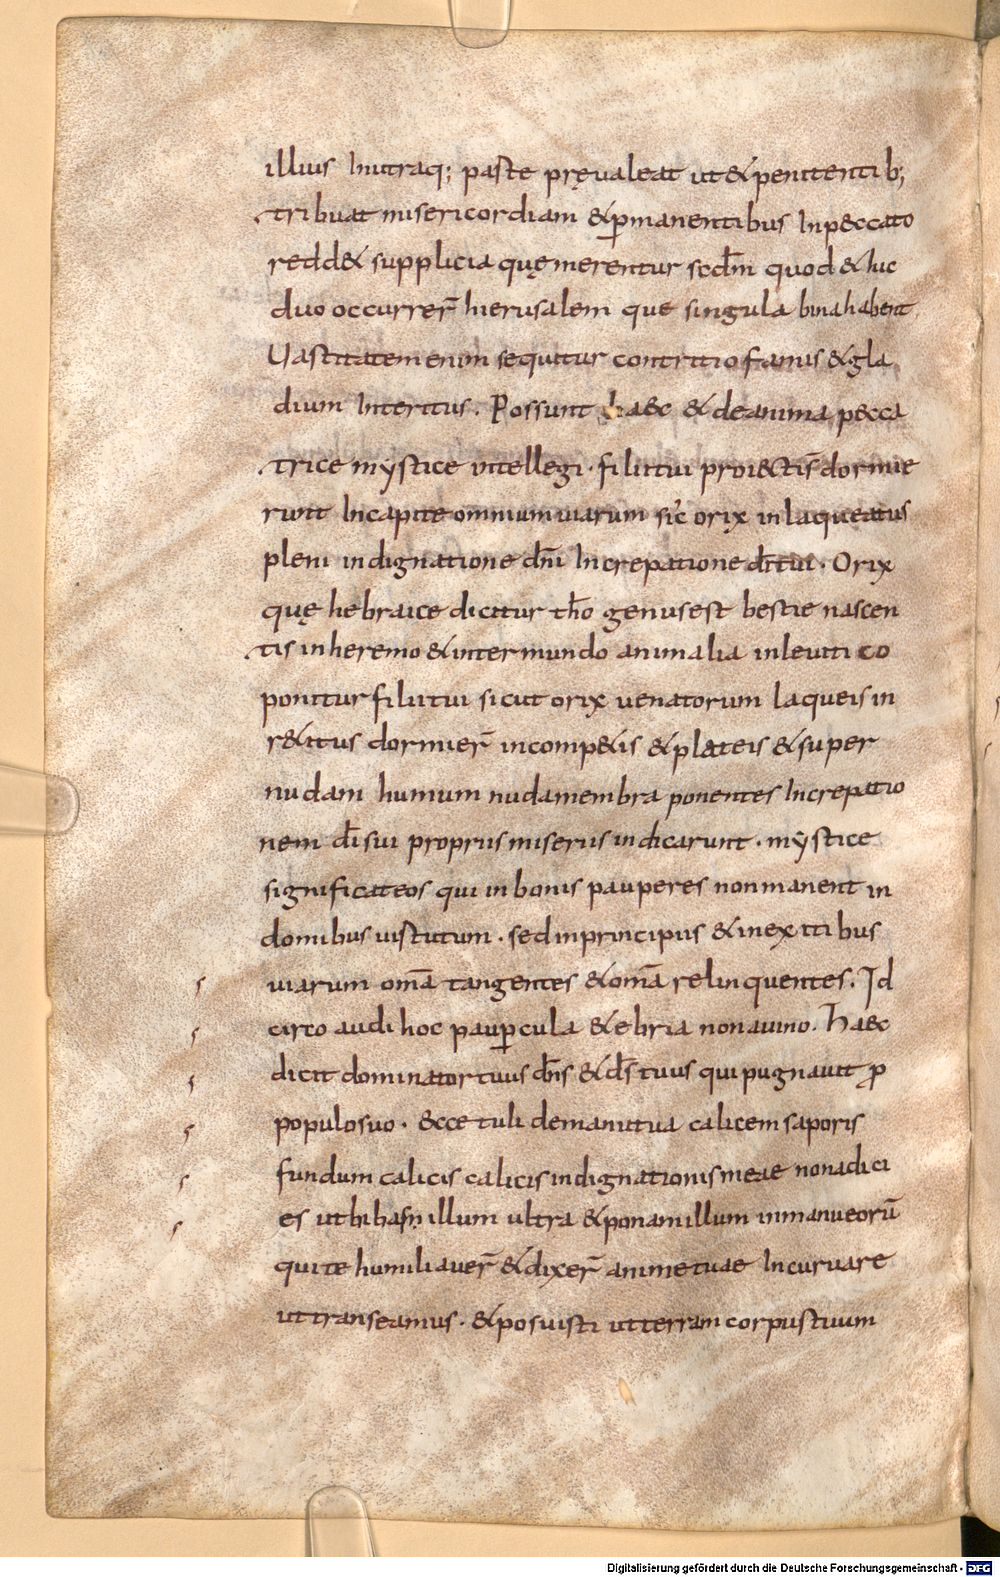 illius Inutraq; paste pręualeat ut & penitentib;
tribuat misericordiam & p̱manentibus Inpeccato
redd& supplicia quę merentur scdm̄ quod & hic
duo occurrer̄ hierusalem que singula bina habent
Uastitatem enim sequitur contritio famis & gla
dium Interitus. Possunt haec & de anima pecca
trice mẏstice intellegi. filii tui proiectis̄ dormie
runt Incapite omnium uiarum sic̄ orix inlaqueatus
pleni indignatione dn̄i Increpatione dī tui. Orix
quę hebraice dicitur tho genus est bestie nascen
tis inheremo & inter mundo animalia inleuitico
ponitur filii tui sicut orix uenatorum laqueis in
r&itus dormier̄ incomp&is & plateis & super
nudam humum nuda membra ponentes Increpatio
nem dī sui propriis miseriis indicarunt. mẏstice
significat eos qui in bonis pauperes non manent in
domibus uistutum. sed inprincipiis & inexitibus
uiarum om̄a tangentes & om̄a relinquentes. Id
circo audi hoc paup̱cula & ebria non auino. Haec
dicit dominator tuus dn̄s & ds̄ tuus qui pugnauit ꝓ
populo suo. ecce tuli de manu tua calicem saporis
fundum calicis calicis indignationis meae non adici
es ut bibas illum ultra & ponam illum in manu eorū
qui te humiliauer̄ & dixer̄ anime tuae Incuruare
ut transeamus. & posuisti ut terram corpus tuum
Digitalisierung gefördert durch die Deutsche Forschungsgemeinschaft - DFG